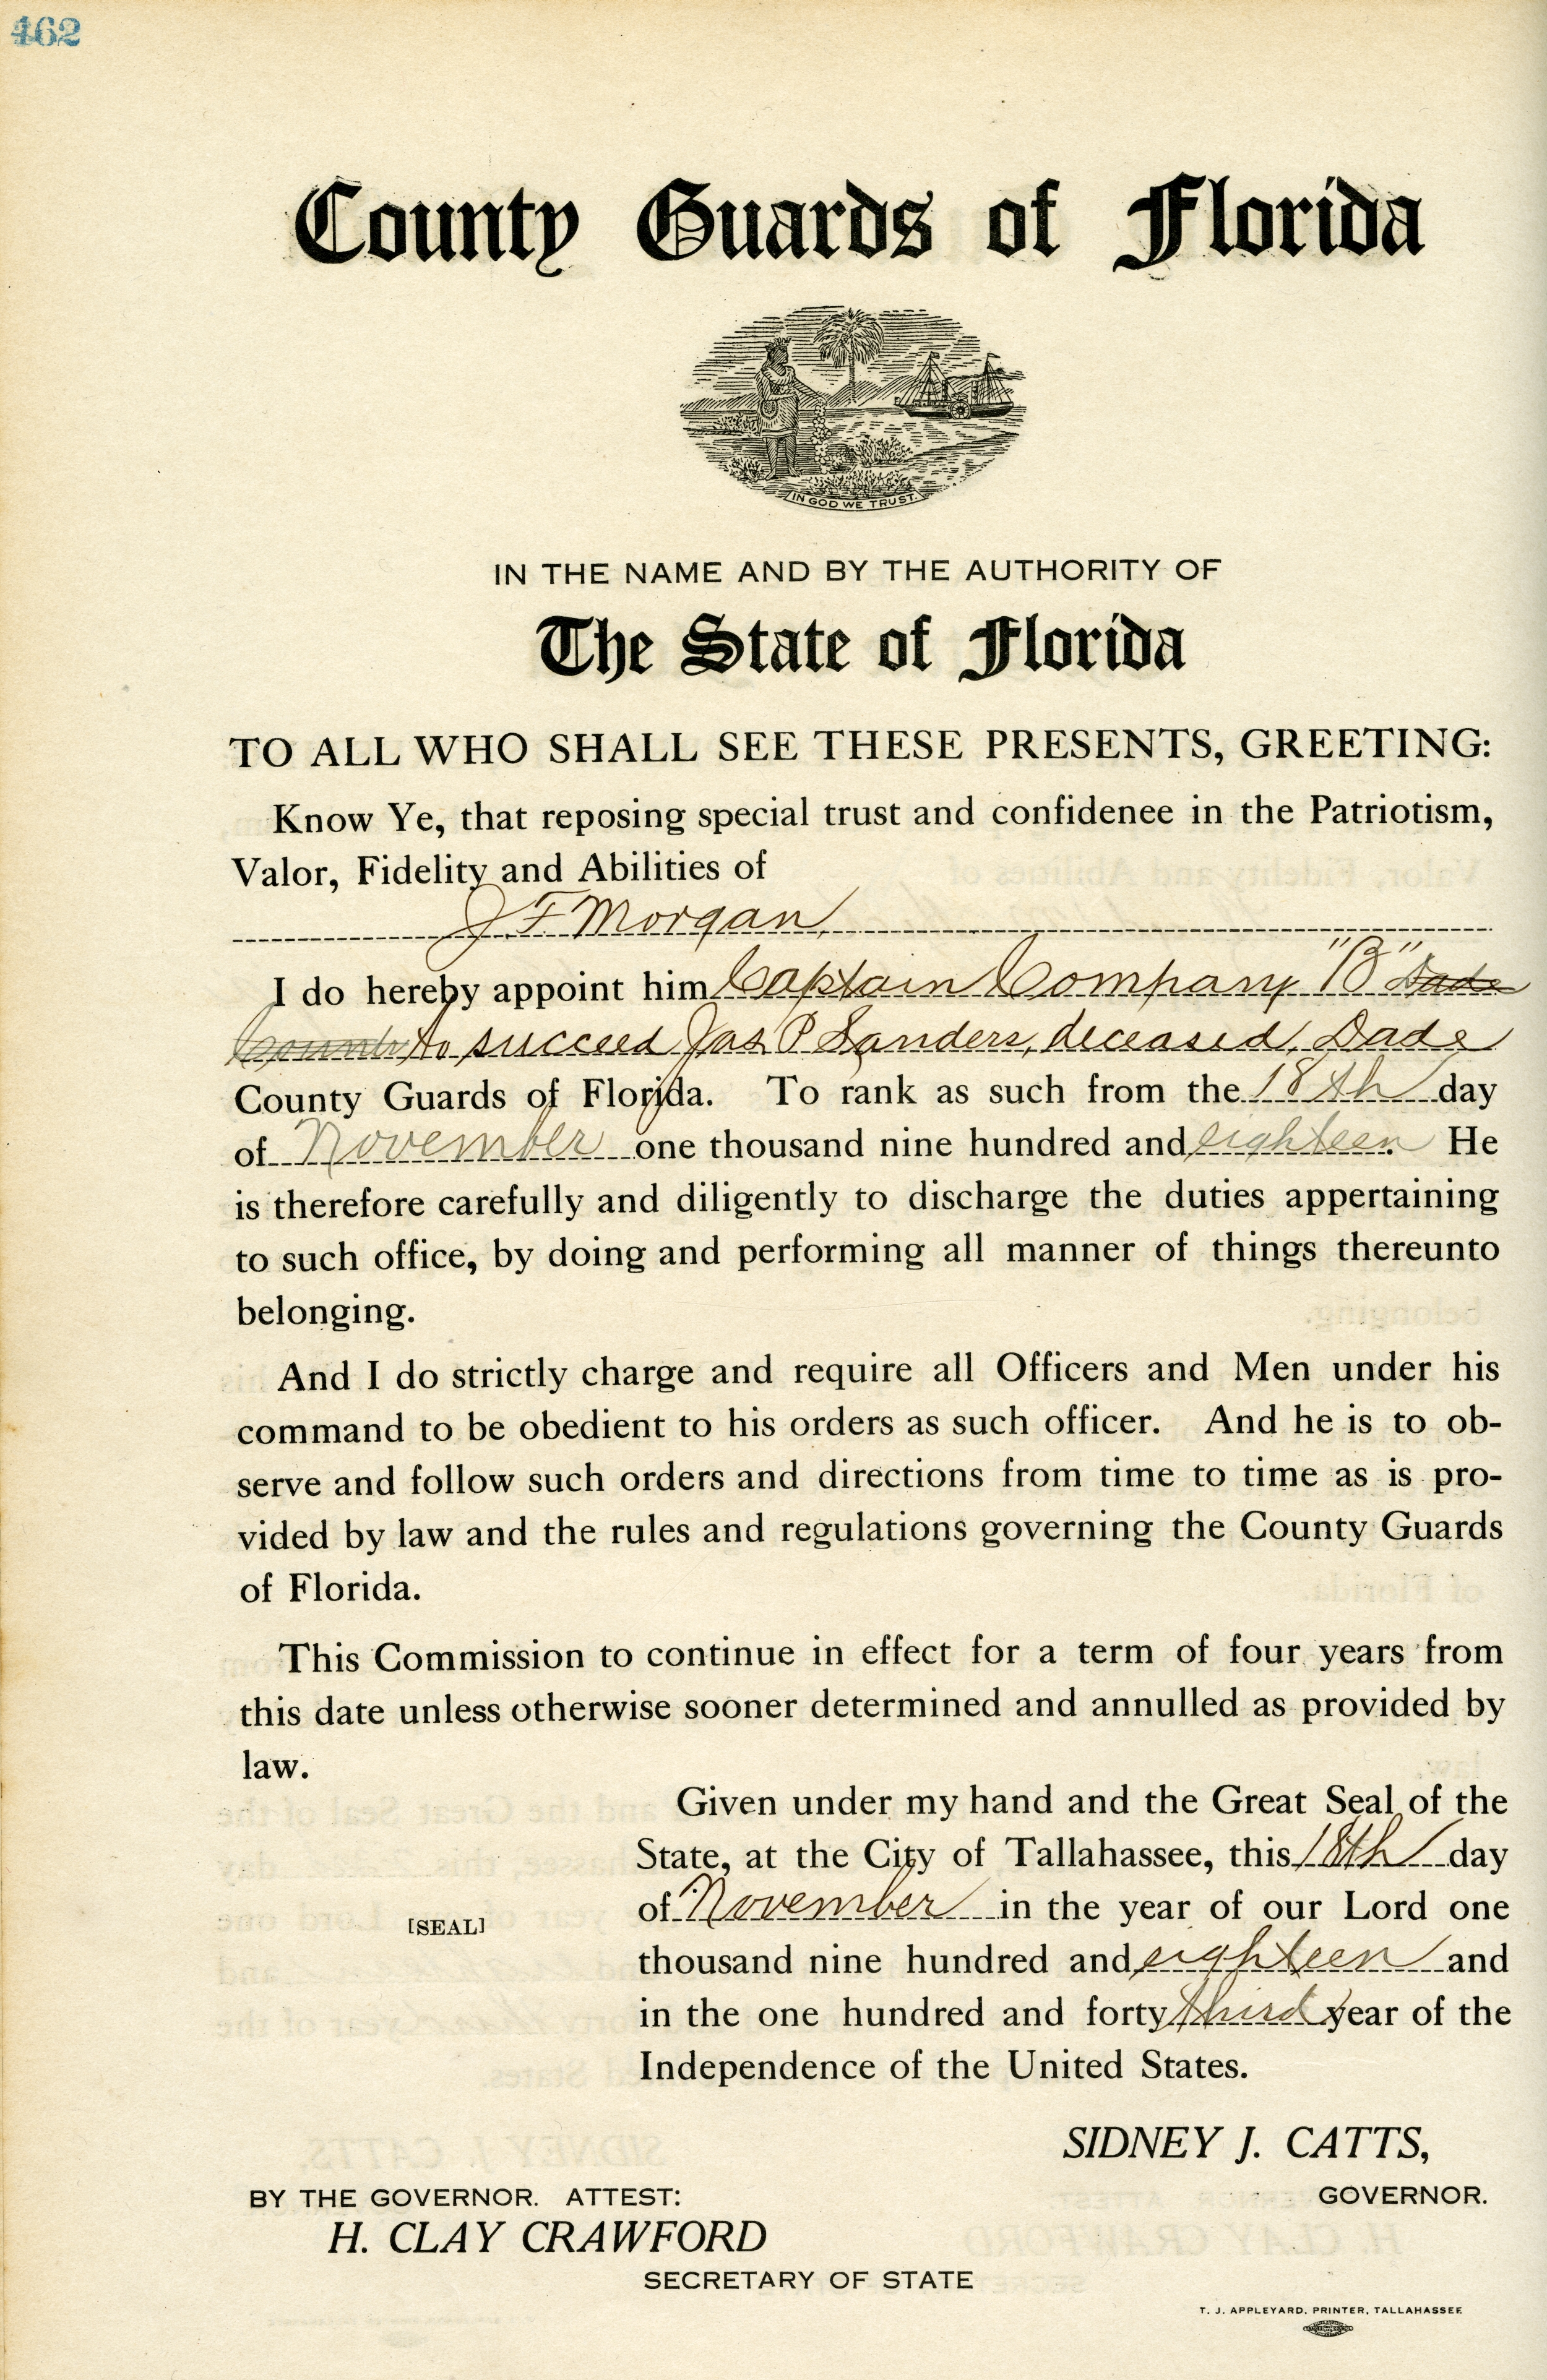 462
County Guards of Florida
IN GOD WE TRUST.
IN THE NAME AND BY THE AUTHORITY OF
The State of Florida
TO ALL WHO SHALL SEE THESE PRESENTS, GREETING:
Know Ye, that reposing special trust and confidenee in the Patriotism,
Valor, Fidelity and Abilities of
J. F. Morgan,
I do hereby appoint him Captain Company "B" Dade
County to succeed Jas. P. Sanders, deceased, Dade
County Guards of Florida. To rank as such from the 18th day
of November one thousand nine hundred and eighteen. He
is therefore carefully and diligently to discharge the duties appertaining
to such office, by doing and performing all manner of things thereunto
belonging.
And I do strictly charge and require all Officers and Men under his
command to be obedient to his orders as such officer. And he is to ob-
serve and follow such orders and directions from time to time as is pro-
vided by law and the rules and regulations governing the County Guards
of Florida.
This Commission to continue in effect for a term of four years from
this date unless otherwise sooner determined and annulled as provided by
law.
Given under my hand and the Great Seal of the
State, at the City of Tallahassee, this 18th day
of November in the year of our Lord one
[SEAL]
thousand nine hundred and eighteen and
in the one hundred and forty third year of the
Independence of the United States.
SIDNEY J. CATTS,
BY THE GOVERNOR. ATTEST: GOVERNOR.
H. CLAY CRAWFORD
SECRETARY OF STATE
T. J. APPLEYARD, PRINTER, TALLAHASSEE